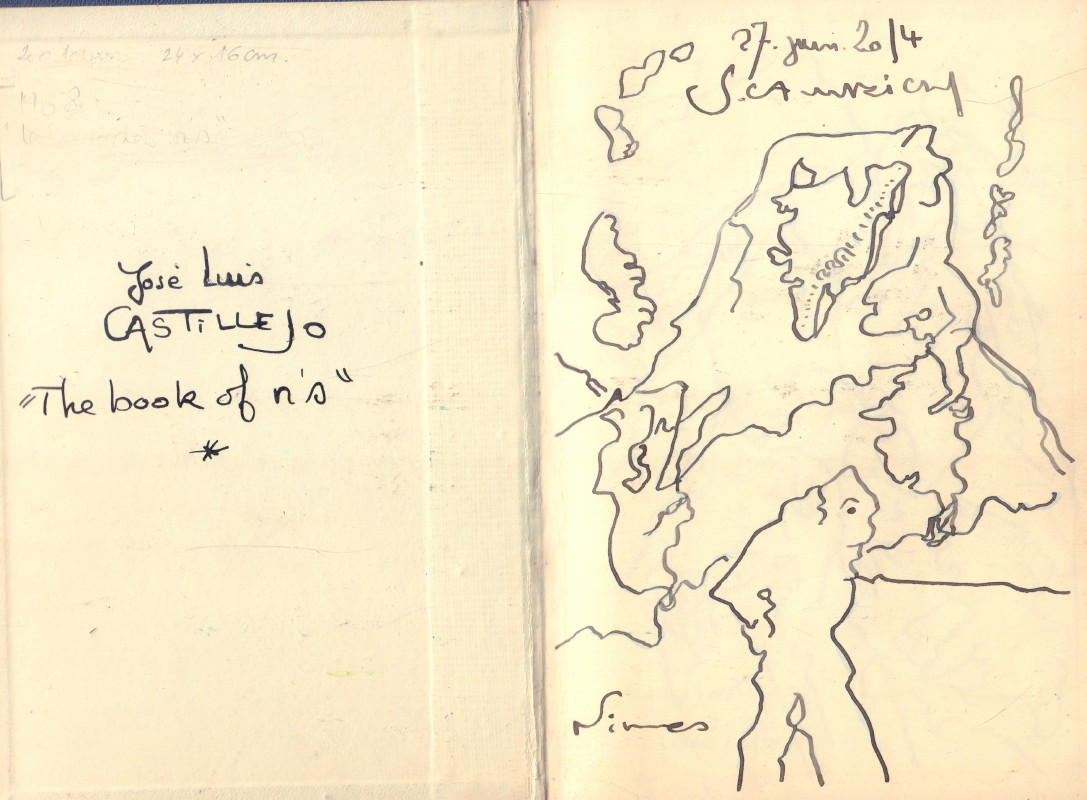 24 x 16 cm.
José Luis
CASTILLEJO
"The book of n's"
*
27. juin. 2014
Nimes